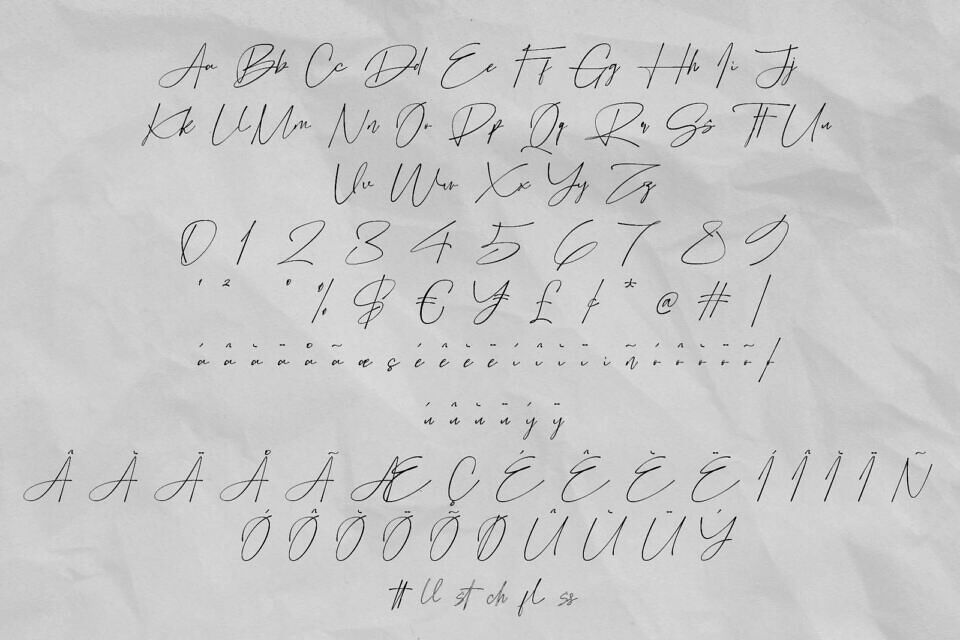 Aa Bb Cc Dd Ee Ff Gg Hh Ii Jj
Kk Ll Mm Nn Oo Pp Qq Rr Ss Tt Uu
Vv Ww Xx Yy Zz
0 1 2 3 4 5 6 7 8 9
¹ ² ° % $ € ¥ £ ¢ * @ # |
á â à ä å ã æ ç é ê è ë í î ì ï ñ ó ô ò ö õ
ú û ù ü ý ÿ
Â À Ä Å Ã Æ Ç É Ê È Ë Í Î Ì Ï Ñ
Ó Ô Ò Ö Õ Ø Û Ù Ü Ý
tt ll st ch fl ss